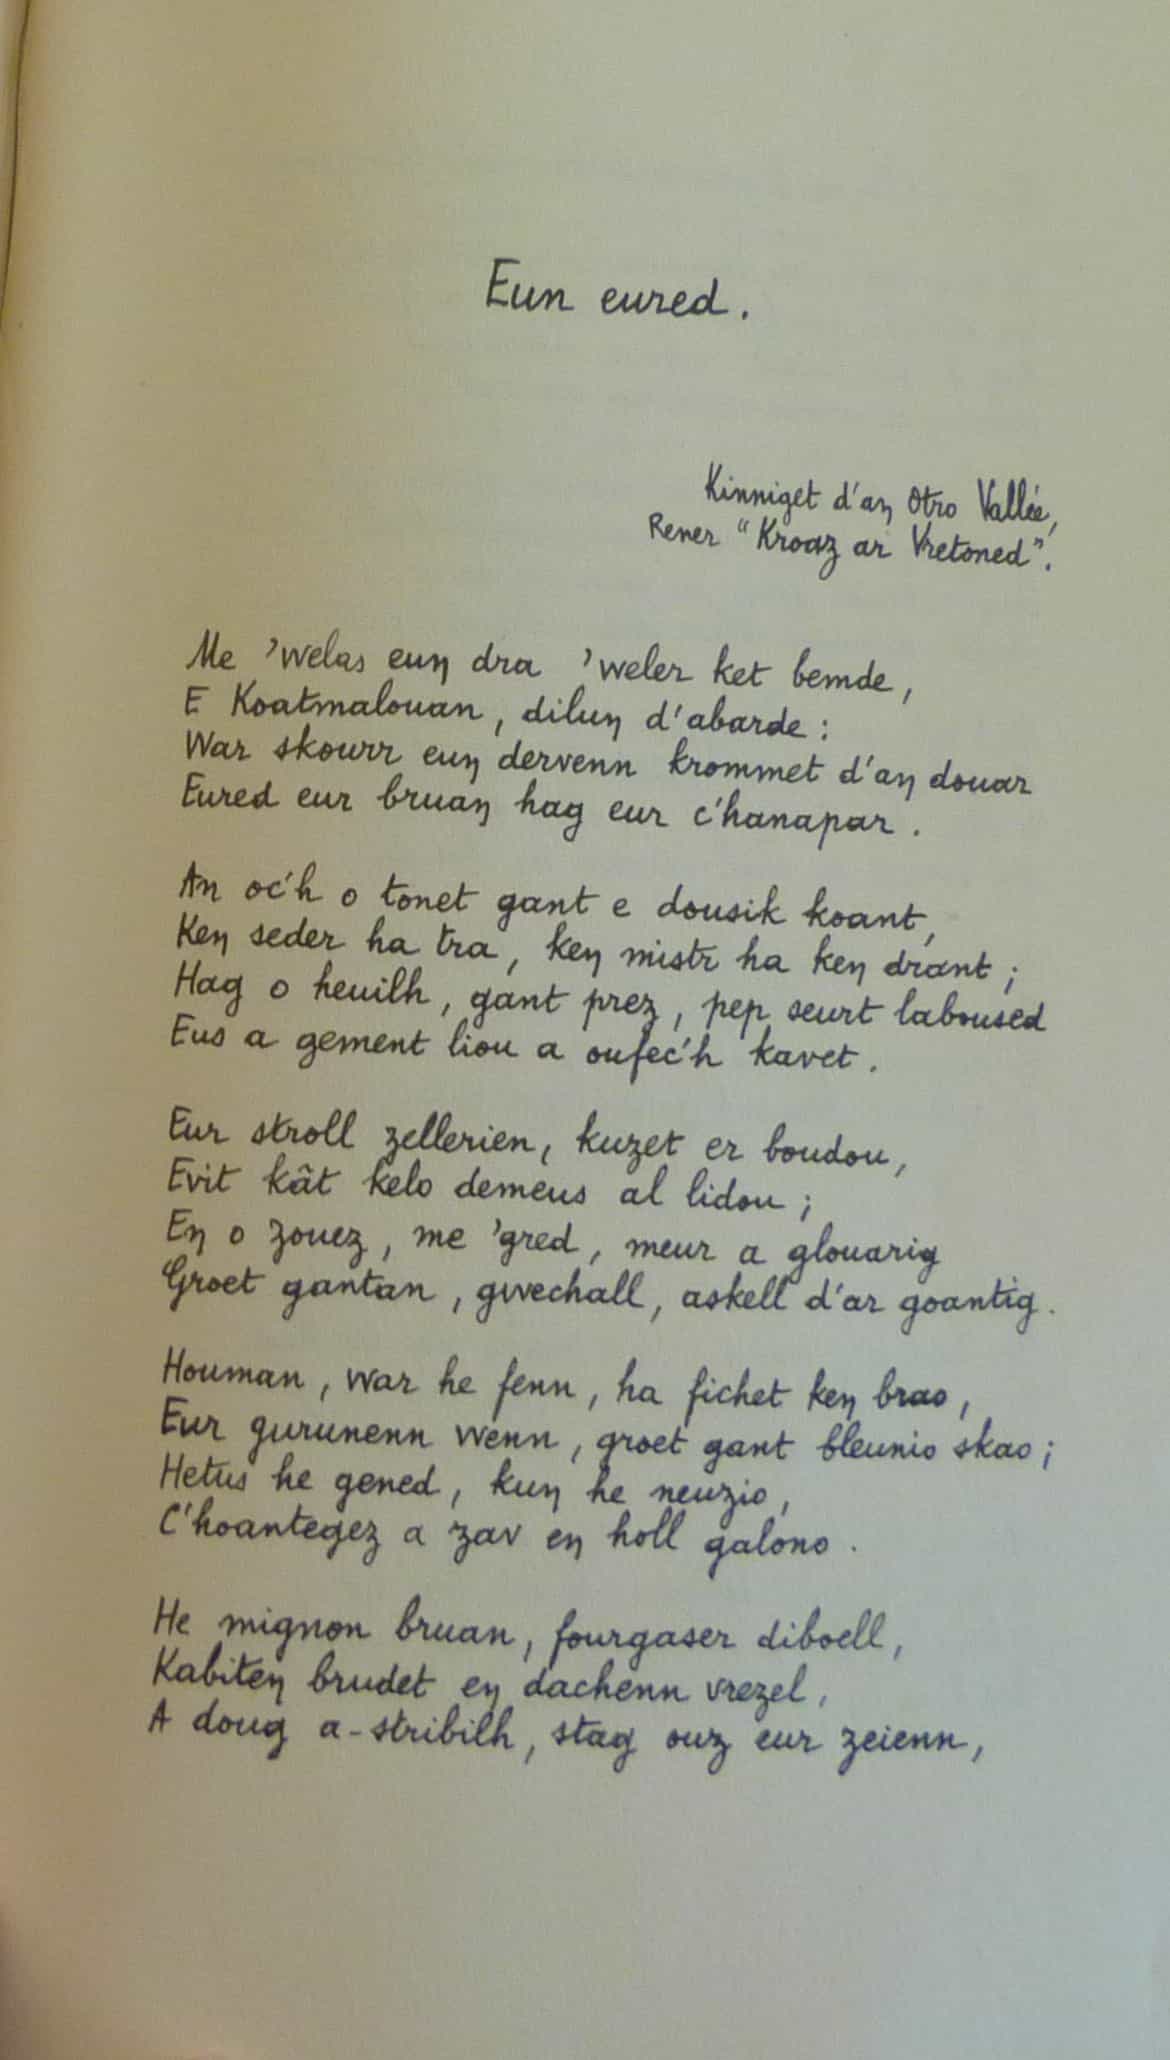 Eun eured.
Kinniget d'aŋ Otro Vallée,
Rener "Kroaz ar Vretoned".
Me 'welas euŋ dra 'weler ket bemde,
E Koatmalouan, diluŋ d'abarde :
War skourr euŋ dervenn krommet d'aŋ douar
Eured eur bruaŋ hag eur c'hanapar.
An oc'h o tonet gant e dousik koant,
Keŋ seder ha tra, keŋ mistr ha keŋ drant ;
Hag o heuilh, gant prez, pep seurt laboused
Eus a gement liou a oufec'h kavet.
Eur stroll zellerien, kuzet er boudou,
Evit kât kelo demeus al lidou ;
Eŋ o zouez, me 'gred, meur a glouarig
Groet gantan, gwechall, askell d'ar goantig.
Houman, war he fenn, ha fichet keŋ brao,
Eur gurunenn wenn, groet gant bleunio skao ;
Hetus he gened, kuŋ he neuzio,
C'hoantegez a zav eŋ holl galono.
He mignon bruan, fourgaser diboell,
Kabiteŋ brudet eŋ dachenn vrezel,
A doug a-stribilh, stag ouz eur zeienn,